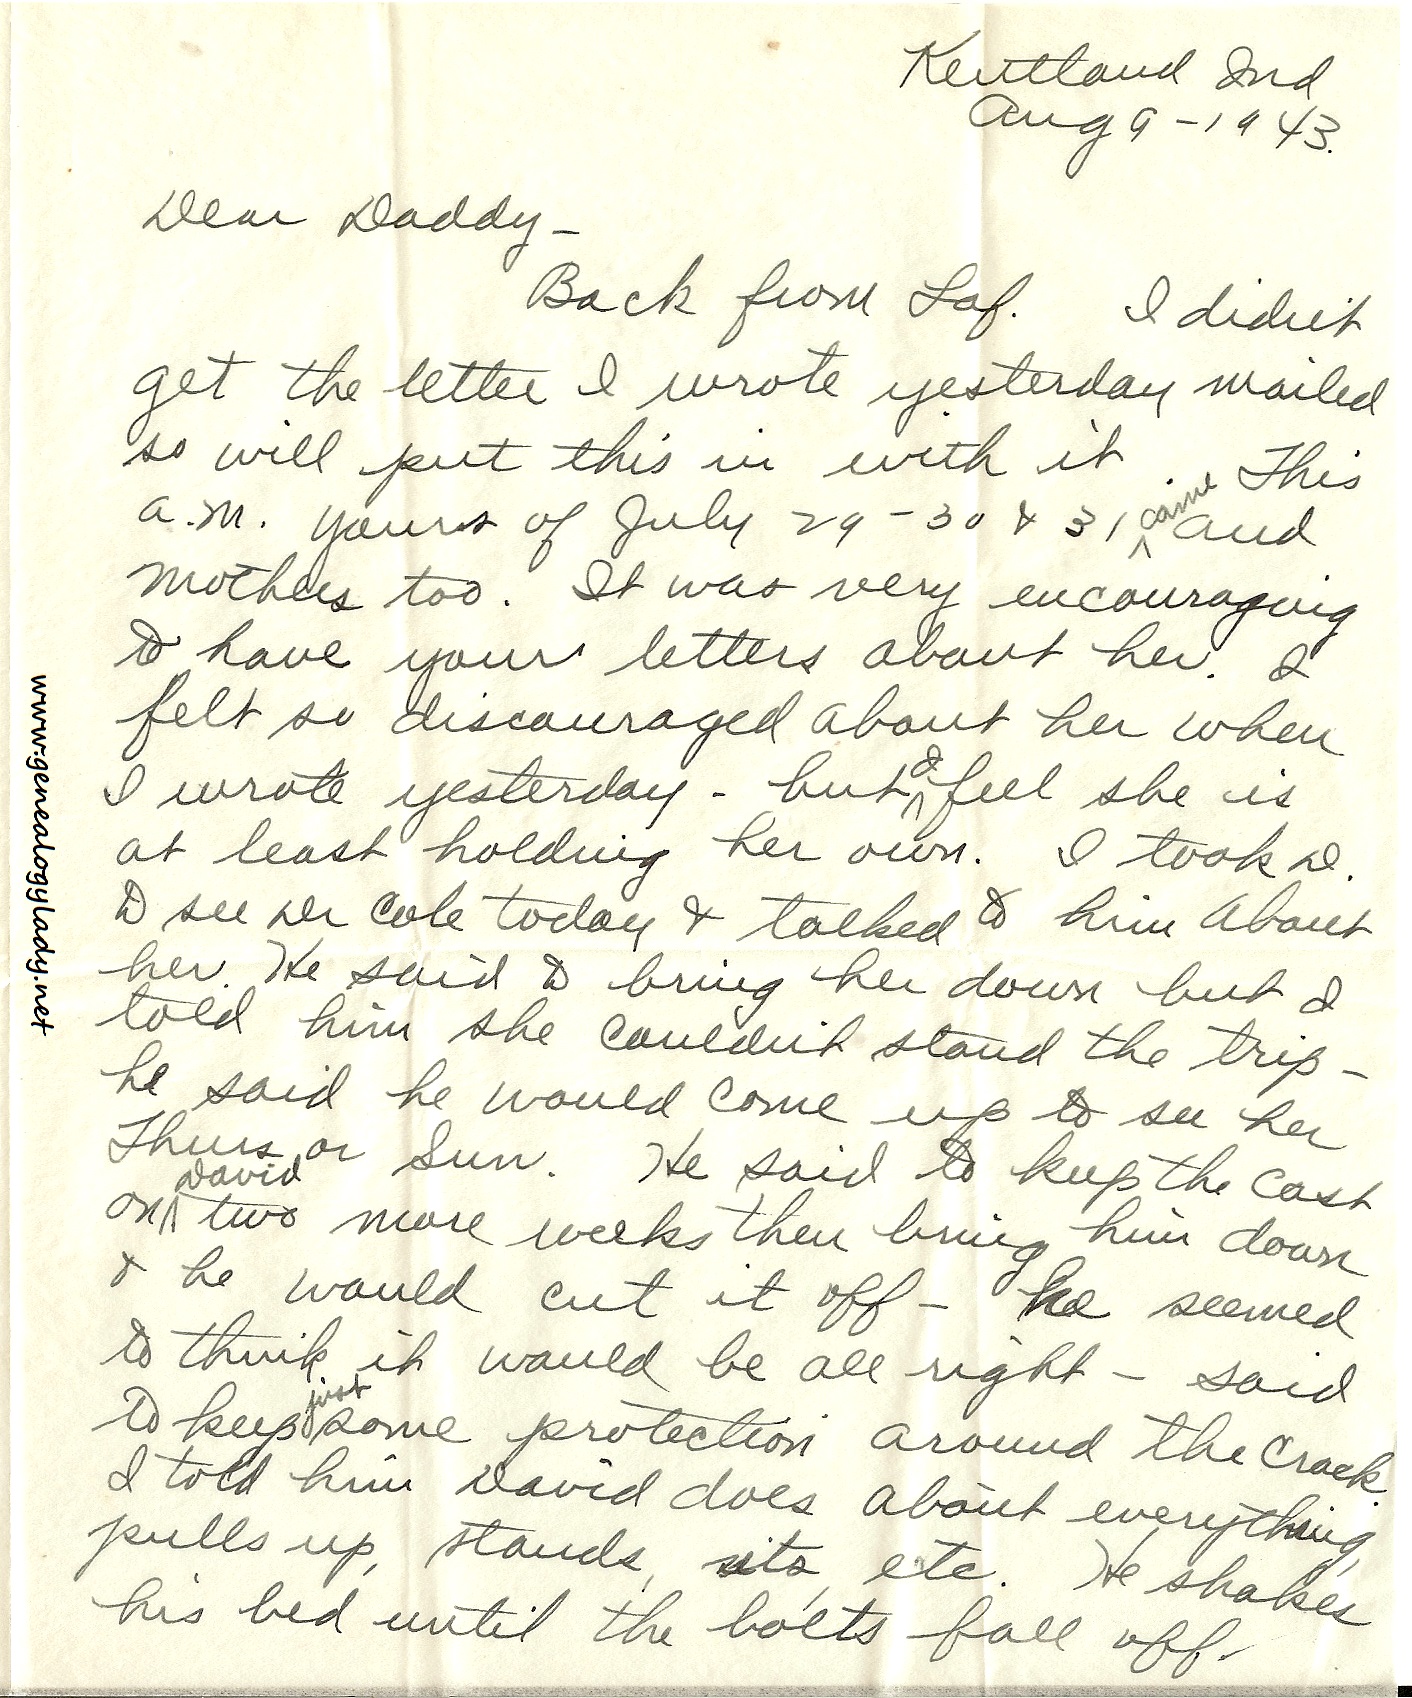 Kentland Ind
Aug 9 - 1943.
Dear Daddy -
Back from Laf. I didn't
get the letter I wrote yesterday mailed
so will put this in with it. This
a.m. yours of July 29 - 30 & 31 came and
Mothers too. It was very encouraging
to have your letters about her. I
felt so discouraged about her when
I wrote yesterday - but I feel she is
at least holding her own. I took D.
to see Dr Cole today & talked to him about
her. He said to bring her down but I
told him she couldn't stand the trip -
he said he would come up to see her
Thurs or Sun. He said to keep the cast
on David two more weeks then bring him down
& he would cut it off - he seemed
to think it would be all right - said
to keep just some protection around the crack.
I told him David does about everything,
pulls up, stands, sits, etc. He shakes
his bed until the bolts fall off.
www.genealogylady.net